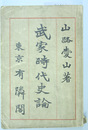 山路愛山著
武家時代史論
東京有隣閣